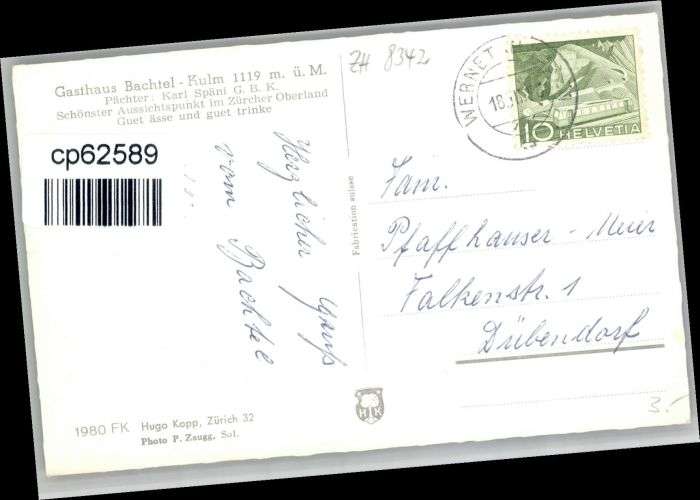 Gasthaus Bachtel - Kulm 1119 m. ü. M.
Pächter: Karl Späni G. B. K.
Schönster Aussichtspunkt im Zürcher Oberland
Guet ässe und guet trinke
cp62589
Herzlicher Gruß
vom Bachtel
Fabrication suisse
ZH 8342
WERNET
18
10 HELVETIA
Fam.
Pfaffhauser - Meier
Falkenstr. 1
Dübendorf
HK
1980 FK Hugo Kopp, Zürich 32
Photo P. Zaugg, Sol.
3.-